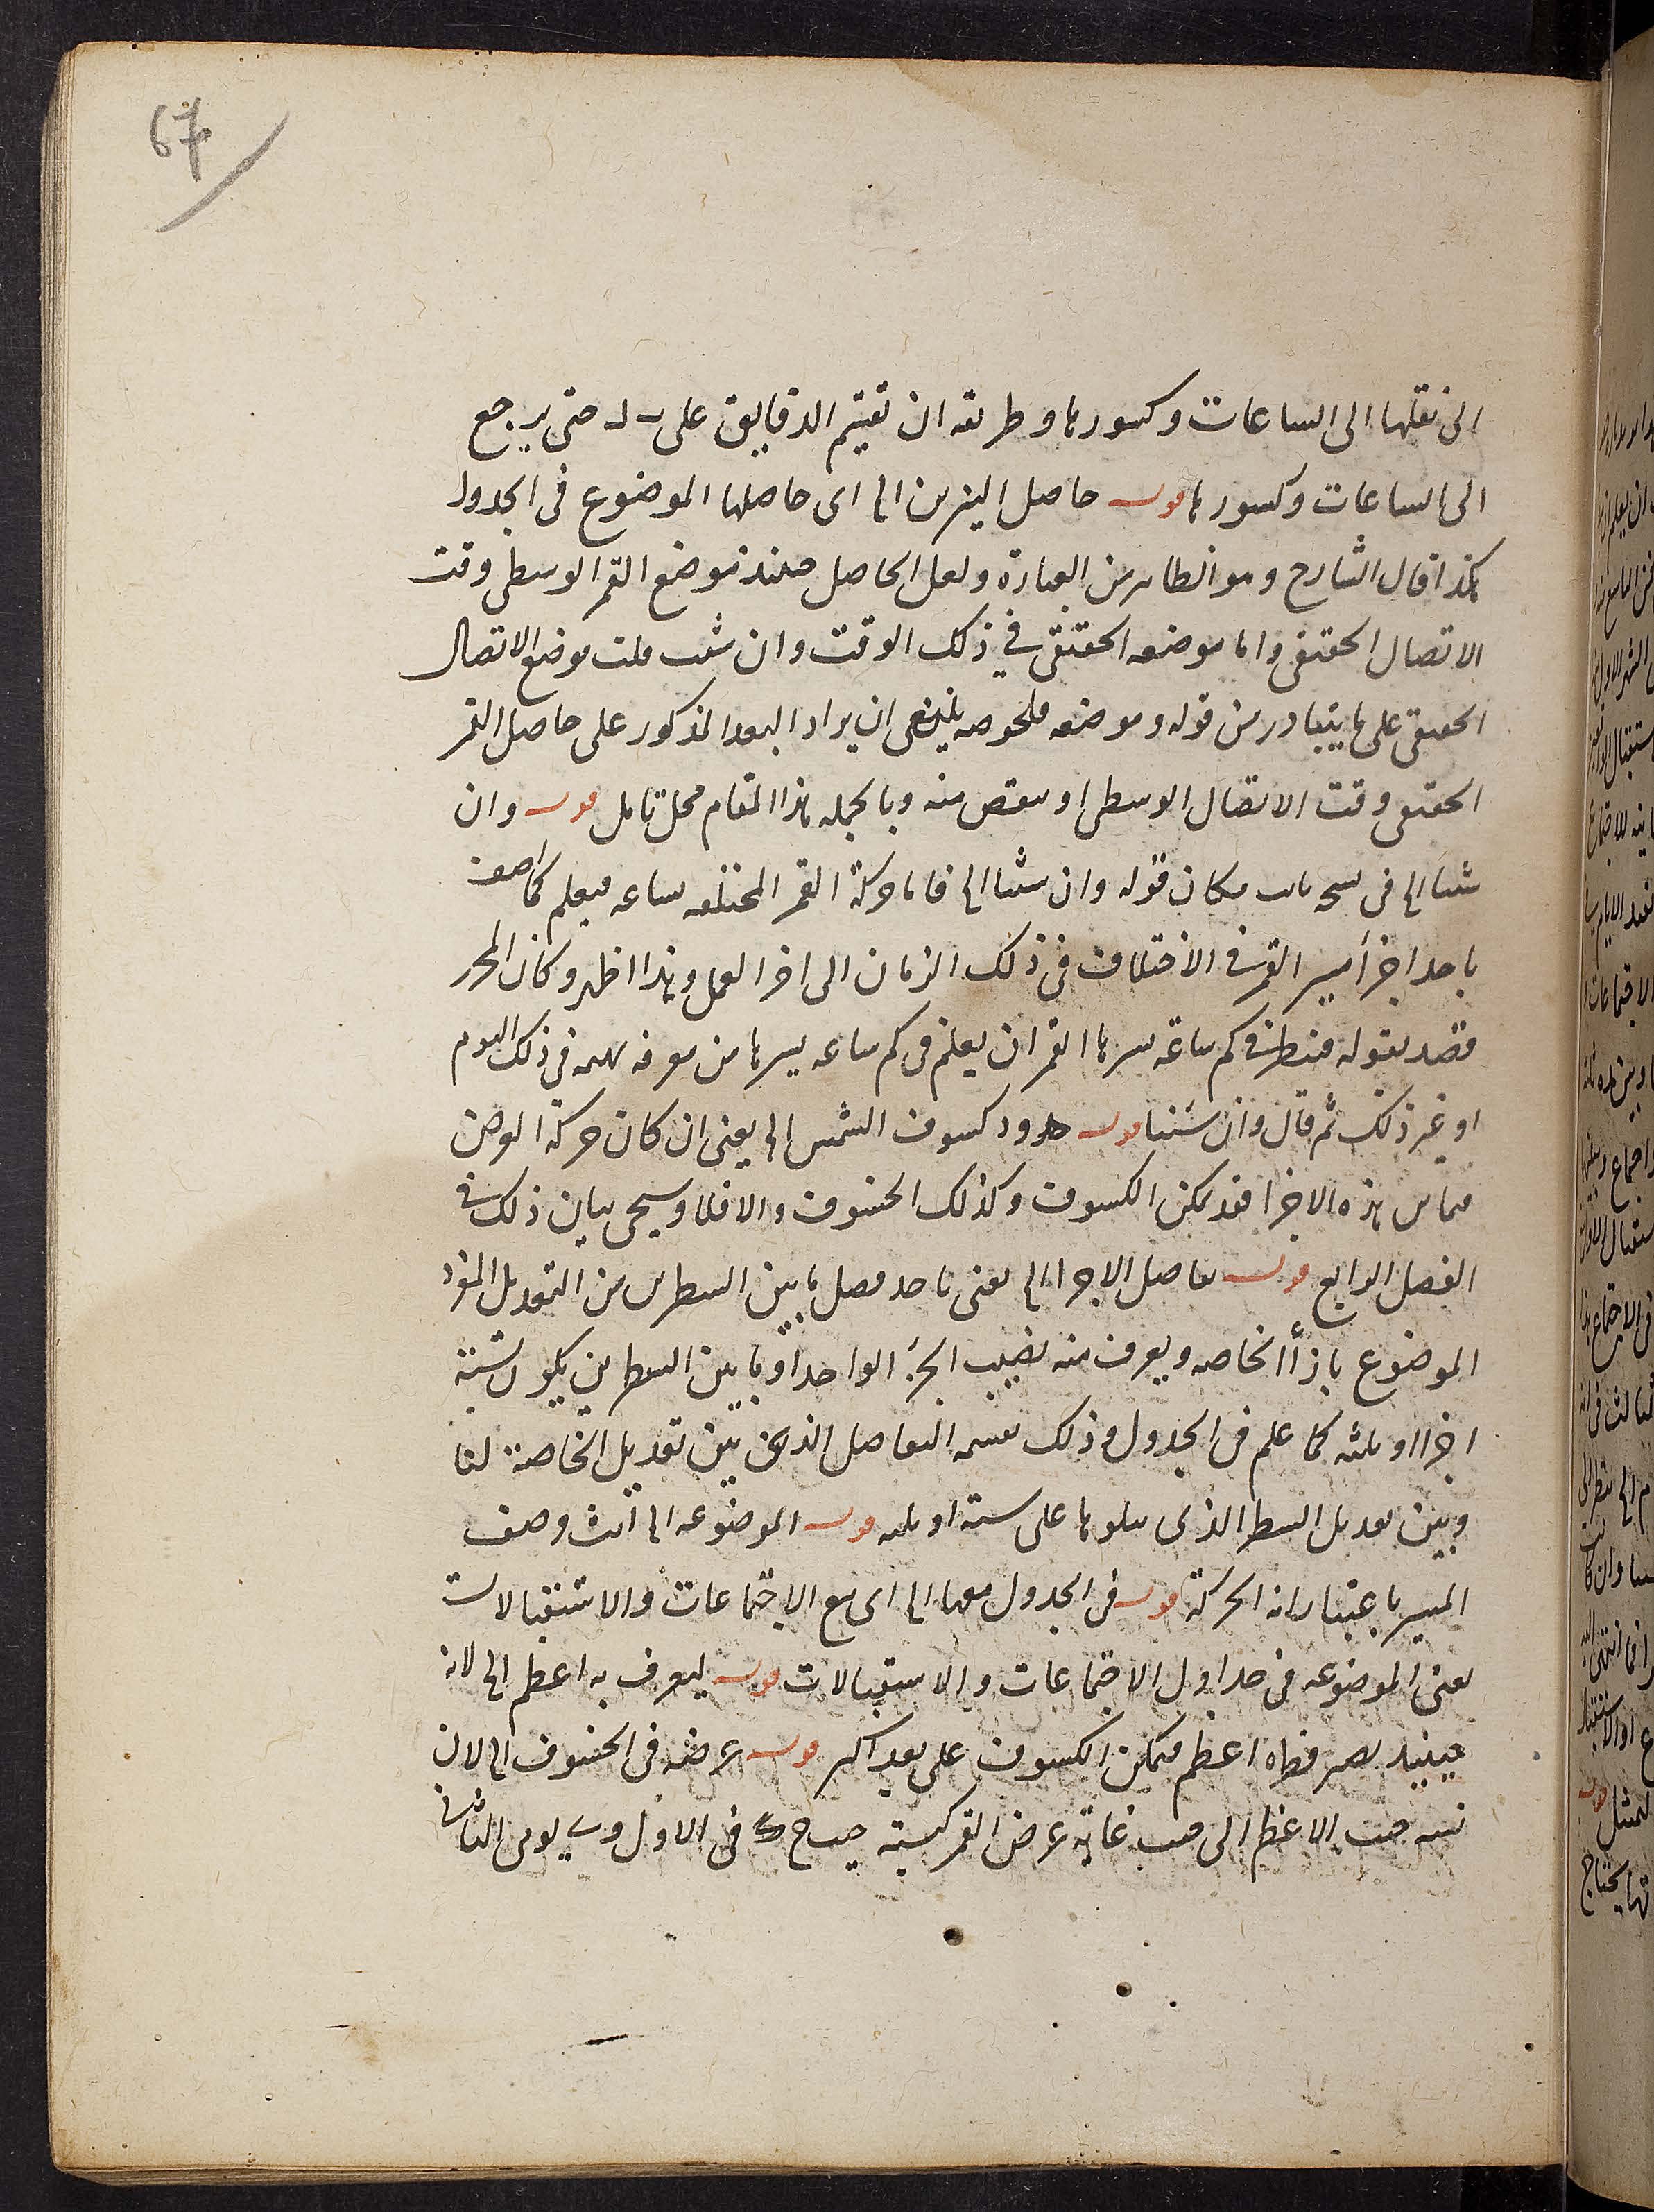 67
الى نقلها الى الساعات وكسورها وطريقه ان تقيم الدقايق على حتى يرجع
الى الساعات وكسورها قوله حاصل النيرين الخ اى حاصلها الموضوع فى الجدول
هكذا قال الشارح وهو الظاهر من العبارة ولعل الحاصل حينئذ موضع القمر الوسطى وقت
الاتصال الحقيقى واما موضعه الحقيقى في ذلك الوقت وان شئت قلت موضع الاتصال
الحقيقى على ما يتبادر من قوله وموضعه فلخوصه ينبغى ان يراد البعد المذكور على حاصل القمر
الحقيقى وقت الاتصال الوسطى او ينقص منه وبالجمله هذا المقام محل تامل قوله وان
شئنا الخ فى نسخه بات مكان قوله وان شئنا الخ فاما حركة القمر المختلفه ساعه فيعلم كما اصف
ياخد اجزا مسير القمر فى الاختلاف فى ذلك الزمان الى اخر العمل وهذا اظهر وكان المحرر
قصد بقوله فينظر فى كم ساعة يسيرها القمر ان يعلم فى كم ساعه يسيرها من معرفه بهته فى ذلك اليوم
او غير ذلك ثم قال وان شئنا قوله حدود كسوف الشمس الخ يعنى ان كان حركة العرض
فيما بين هذه الاجزا فقد يمكن الكسوف وكذلك الخسوف والا فلا وسيجى بيان ذلك فى
الفصل الرابع قوله تفاضل الاجزاء الخ يعنى ناخد فصل ما بين السطرين من التعديل المفرد
الموضوع بازاأ الخاصه ويعرف منه نصيب الجزء الواحد او ما بين السطرين يكون ستة
اجزا او ثلثه كما علم فى الجدول وذلك بقسمه التفاضل الذى بين تعديل الخاصة لنا
وبين تعديل السطر الذى يتلوها على سته او ثلثه قوله الموضوعه الخ انث وصف
المسير باعتبار انه الحركة قوله فى الجدول معها الخ اى مع الاجتماعات والاستقبالات
يعنى الموضوعه فى جداول الاجتماعات والاستقبالات قوله ليعرف به اعظم الخ لانه
حينئذ يصير قطراه اعظم فيمكن الكسوف على بعد اكبر قوله عرضه فى الخسوف الخ لان
نسبه جيب الاعظم الى جيب غاية عرض القمر كنسبة جيب فى الاول الثانى